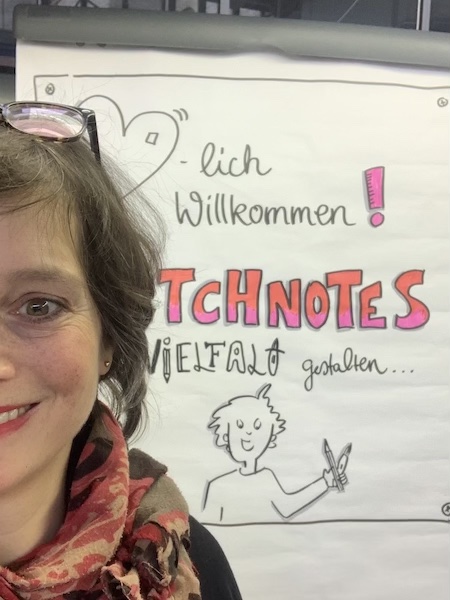 -lich
Willkommen!
TCHNOTES
VIELFALT gestalten...